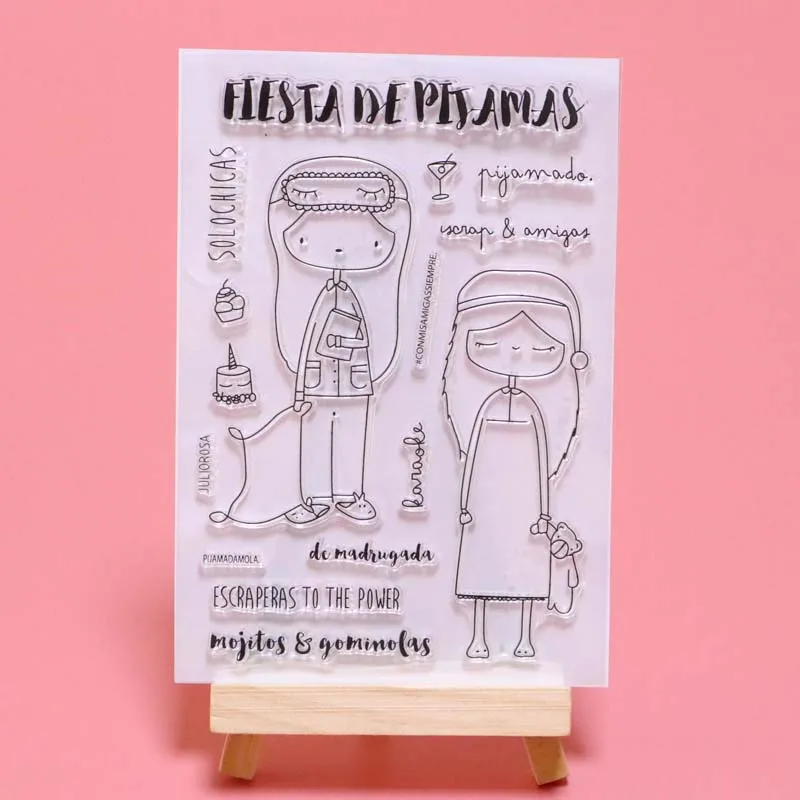 FIESTA DE PIJAMAS
SOLOCHICAS
pijamado.
scrap & amigas
#CONMISAMIGASSIEMPRE.
JULIOROSA
karaoke
PIJAMADAMOLA.
de madrugada
ESCRAPERAS TO THE POWER
mojitos & gominolas